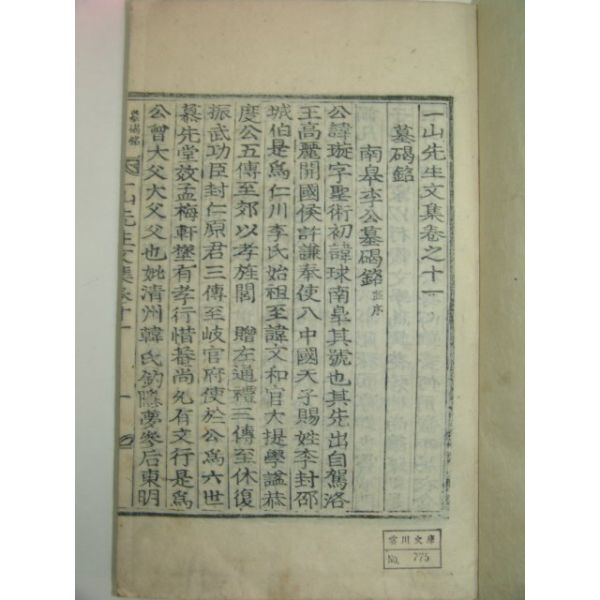 一山先生文集卷之十一
墓碣銘
南皐李公墓碣銘 並序
公諱璇字聖術初諱球南皐其號也其先出自駕洛
王高麗開國侯許謙奉使入中國天子賜姓李封邵
城伯是爲仁川李氏始祖至諱文和官大提學諡恭
度公五傳至郊以孝旌閭 贈左通禮三傳至休復
振武功臣封仁原君三傳至岐官府使於公爲六世
慕先堂效孟梅軒壑有孝行惜番尚允有文行是爲
公曾大父大父父也妣清州韓氏釣隱夢參后東明
墓碣銘 一山先生文集卷十一 一
宮川文庫
No. 775